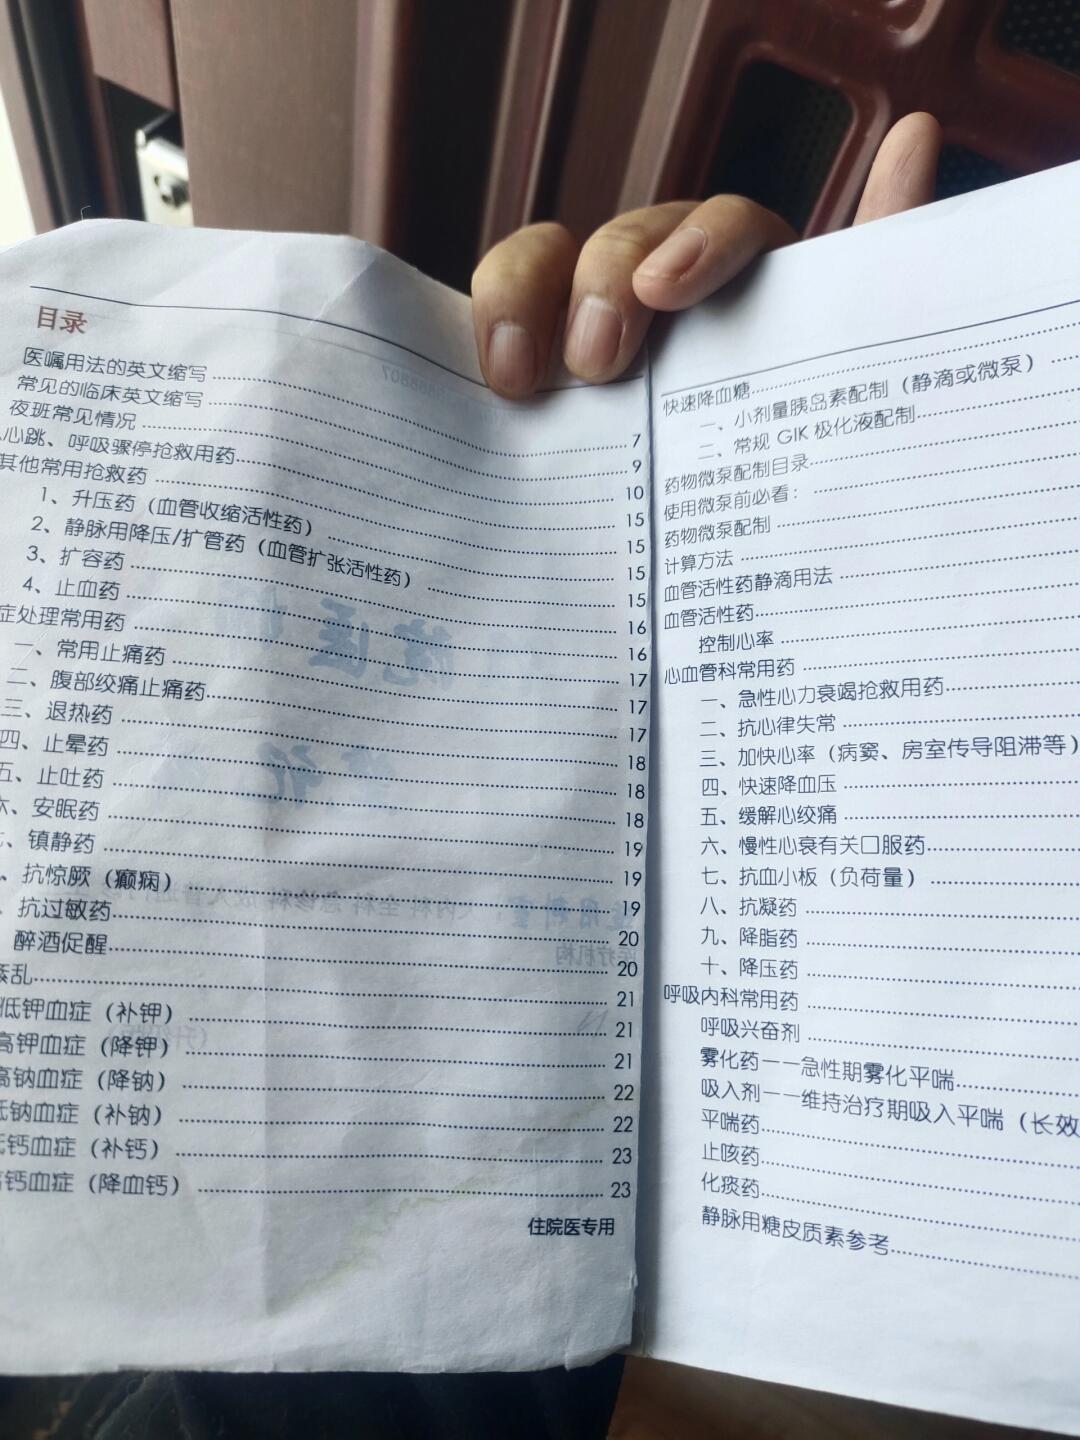 目录
医嘱用法的英文缩写 7
常见的临床英文缩写 9
夜班常见情况 10
心跳、呼吸骤停抢救用药 15
其他常用抢救药 15
1、升压药（血管收缩活性药） 15
2、静脉用降压/扩管药（血管扩张活性药） 15
3、扩容药 16
4、止血药 16
症处理常用药 17
一、常用止痛药 17
二、腹部绞痛止痛药 17
三、退热药 18
四、止晕药 18
五、止吐药 18
六、安眠药 19
镇静药 19
、抗惊厥（癫痫） 19
、抗过敏药 20
醉酒促醒 20
乱 21
低钾血症（补钾） 21
高钾血症（降钾） 21
高钠血症（降钠） 22
低钠血症（补钠） 22
低钙血症（补钙） 23
高钙血症（降血钙） 23
住院医专用
快速降血糖
一、小剂量胰岛素配制（静滴或微泵）
二、常规 GIK 极化液配制
药物微泵配制目录
使用微泵前必看：
药物微泵配制
计算方法
血管活性药静滴用法
血管活性药
控制心率
心血管科常用药
一、急性心力衰竭抢救用药
二、抗心律失常
三、加快心率（病窦、房室传导阻滞等）
四、快速降血压
五、缓解心绞痛
六、慢性心衰有关口服药
七、抗血小板（负荷量）
八、抗凝药
九、降脂药
十、降压药
呼吸内科常用药
呼吸兴奋剂
雾化药——急性期雾化平喘
吸入剂——维持治疗期吸入平喘（长效
平喘药
止咳药
化痰药
静脉用糖皮质素参考